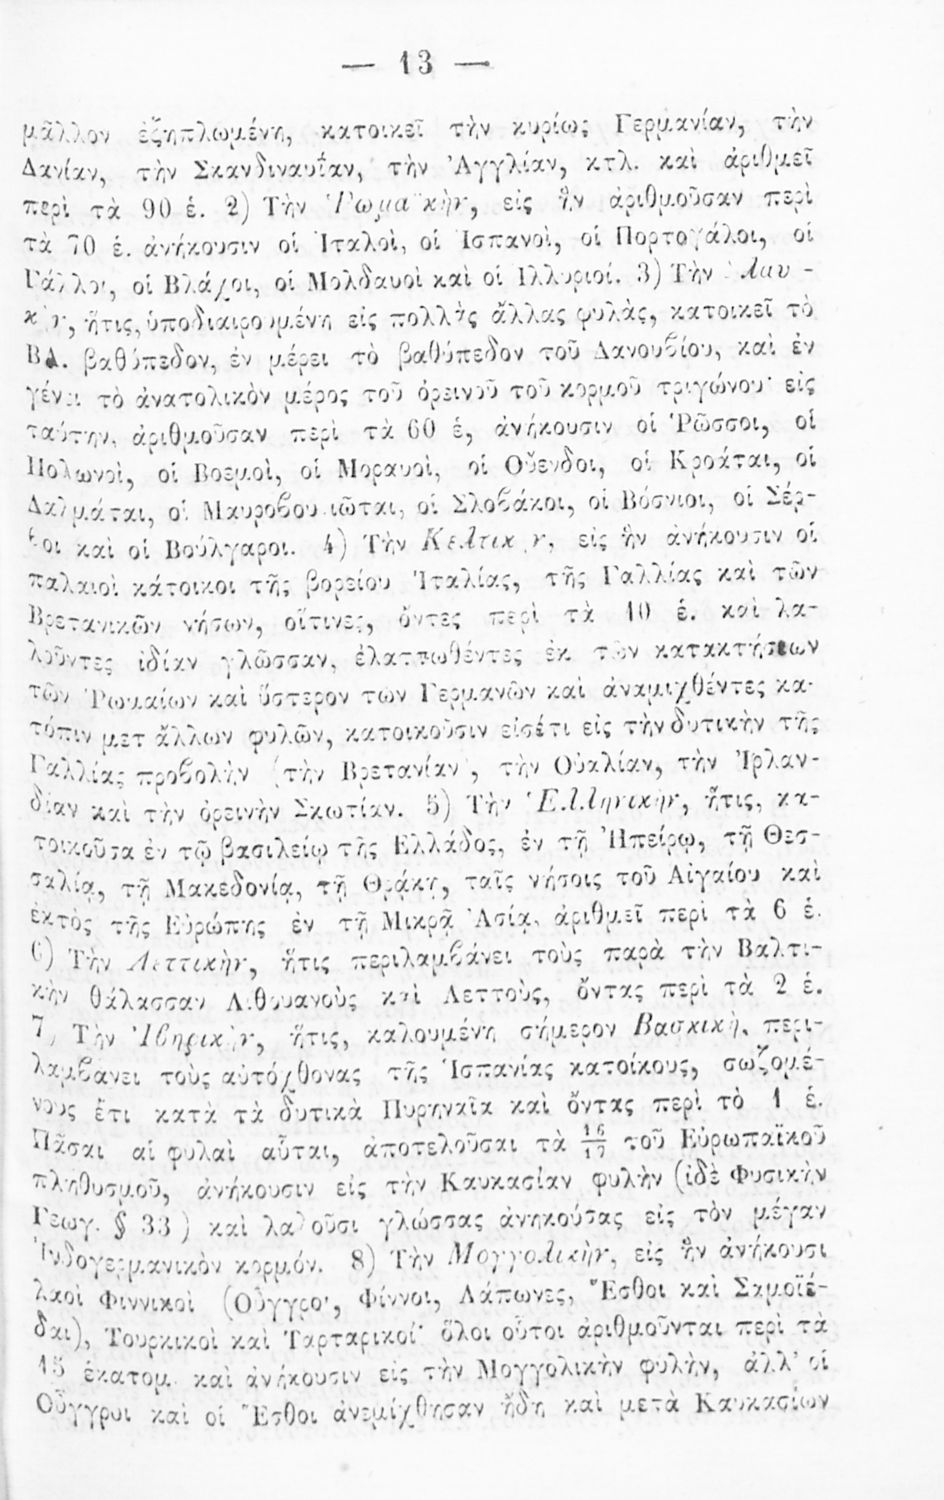 — 13 —
μᾶλλον ἐξηπλωμένη, κατοικεῖ τὴν κυρίως Γερμανίαν, τὴν
Δανίαν, τὴν Σκανδιναυΐαν, τὴν Ἀγγλίαν, κτλ. καὶ ἀριθμεῖ
περὶ τὰ 90 ἑ. 2) Τὴν Ῥωμαϊκὴν, εἰς ἣν ἀριθμοῦσαν περὶ
τὰ 70 ἑ. ἀνήκουσιν οἱ Ἰταλοὶ, οἱ Ἱσπανοὶ, οἱ Πορτογάλοι, οἱ
Γάλλοι, οἱ Βλάχοι, οἱ Μολδαυοὶ καὶ οἱ Ἰλλυριοί. 3) Τὴν
ἥτις, ὑποδιαιρουμένη εἰς πολλὰς ἄλλας φυλὰς, κατοικεῖ τὸ
ΒΑ. βαθύπεδον, ἐν μέρει τὸ βαθύπεδον τοῦ Δανουβίου, καὶ ἐν
γένει τὸ ἀνατολικὸν μέρος τοῦ ὀρεινοῦ τοῦ κορμοῦ τριγώνου· εἰς
ταύτην, ἀριθμοῦσαν περὶ τὰ 60 ἑ, ἀνήκουσιν οἱ Ῥῶσσοι, οἱ
Πολωνοὶ, οἱ Βοεμοὶ, οἱ Μοραυοὶ, οἱ Οὔενδοι, οἱ Κροάται, οἱ
Δαλμάται, οἱ Μαυροβουνιῶται, οἱ Σλοβάκοι, οἱ Βόσνιοι, οἱ Σέρ-
βοι καὶ οἱ Βούλγαροι. 4) Τὴν Κελτικὴν, εἰς ἣν ἀνήκουσιν οἱ
παλαιοὶ κάτοικοι τῆς βορείου Ἰταλίας, τῆς Γαλλίας καὶ τῶν
Βρετανικῶν νήσων, οἵτινες, ὄντες περὶ τὰ 10 ἑ. καὶ λα-
λοῦντες ἰδίαν γλῶσσαν, ἐλαττωθέντες ἐκ τῶν κατακτήσεων
τῶν Ῥωμαίων καὶ ὕστερον τῶν Γερμανῶν καὶ ἀναμιχθέντες κα-
τόπιν μετ ἄλλων φυλῶν, κατοικοῦσιν εἰσέτι εἰς τὴν δυτικὴν τῆς
Γαλλίας προβολὴν (τὴν Βρετανίαν), τὴν Οὐαλίαν, τὴν Ἰρλαν-
δίαν καὶ τὴν ὀρεινὴν Σκωτίαν. 5) Τὴν Ἑλληνικὴν, ἥτις, κα-
τοικοῦσα ἐν τῷ βασιλείῳ τῆς Ἑλλάδος, ἐν τῇ Ἠπείρῳ, τῇ Θεσ-
σαλίᾳ, τῇ Μακεδονίᾳ, τῇ Θράκῃ, ταῖς νήσοις τοῦ Αἰγαίου καὶ
ἐκτὸς τῆς Εὐρώπης ἐν τῇ Μικρᾷ Ἀσίᾳ, ἀριθμεῖ περὶ τὰ 6 ἑ.
6) Τὴν Λεττικὴν, ἥτις περιλαμβάνει τοὺς παρὰ τὴν Βαλτι-
κὴν θάλασσαν Λιθουανοὺς καὶ Λεττοὺς, ὄντας περὶ τὰ 2 ἑ.
7) Τὴν Ἰβηρικὴν, ἥτις, καλουμένη σήμερον Βασκικὴ, περι-
λαμβάνει τοὺς αὐτόχθονας τῆς Ἱσπανίας κατοίκους, σωζομέ-
νους ἔτι κατὰ τὰ δυτικὰ Πυρηναῖα καὶ ὄντας περὶ τὸ 1 ἑ.
Πᾶσαι αἱ φυλαὶ αὗται, ἀποτελοῦσαι τὰ 16/17 τοῦ Εὐρωπαϊκοῦ
πληθυσμοῦ, ἀνήκουσιν εἰς τὴν Καυκασίαν φυλὴν (ἰδὲ Φυσικὴν
Γεωγ. § 33) καὶ λαλοῦσι γλώσσας ἀνηκούσας εἰς τὸν μέγαν
Ἰνδογερμανικὸν κορμόν. 8) Τὴν Μογγολικὴν, εἰς ἣν ἀνήκουσι
λαοὶ Φιννικοὶ (Οὗγγροι, Φίννοι, Λάπωνες, Ἔσθοι καὶ Σαμοϊέ-
δαι), Τουρκικοὶ καὶ Ταρταρικοί· ὅλοι οὗτοι ἀριθμοῦνται περὶ τὰ
15 ἑκατομ. καὶ ἀνήκουσιν εἰς τὴν Μογγολικὴν φυλὴν, ἀλλ' οἱ
Οὗγγροι καὶ οἱ Ἔσθοι ἀνεμίχθησαν ἤδη καὶ μετὰ Καυκασίων